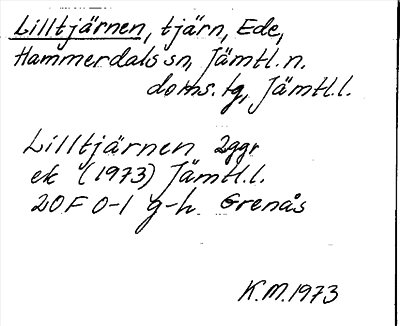 Lilltjärnen, tjärn, Ede,
Hammerdals sn, Jämtl. n.
doms. tg, Jämtl. l.
Lilltjärnen 2ggr
ek (1973) Jämtl. l.
20F 0-1 g-h Grenås
K.M. 1973